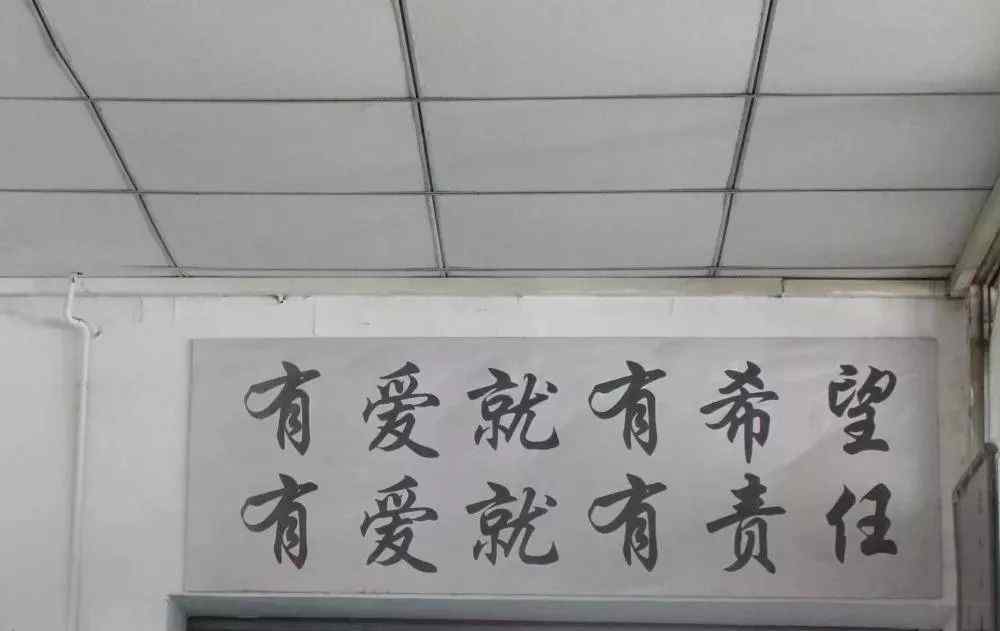 有爱就有希望
有爱就有责任